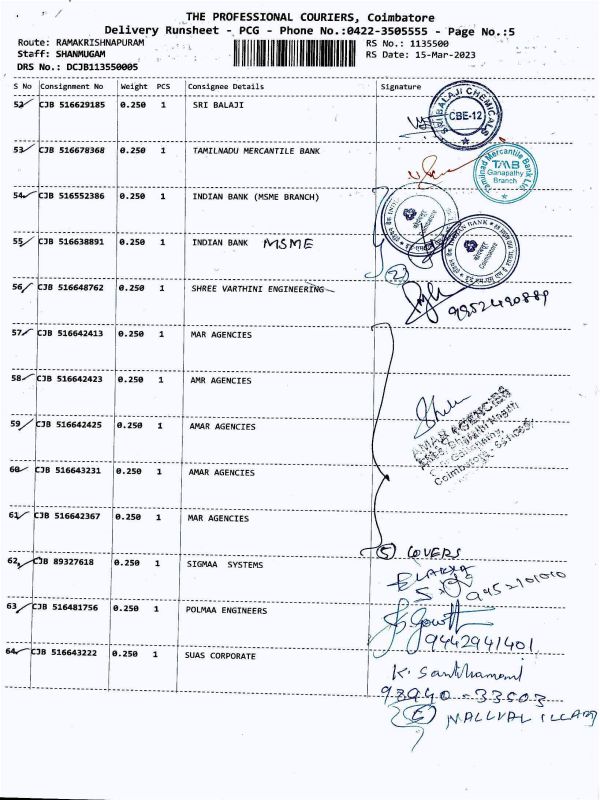 THE PROFESSIONAL COURIERS, Coimbatore
Delivery Runsheet - PCG - Phone No.:0422-3505555 - Page No.:5
Route: RAMAKRISHNAPURAM
RS No.: 1135500
Staff: SHANMUGAM
RS Date: 15-Mar-2023
DRS No.: DCJB113550005
S No Consignment No Weight PCS Consignee Details Signature
52 CJB 516629185 0.250 1 SRI BALAJI
SRI BALAJI CHEMICALS
CBE-12
53 CJB 516678368 0.250 1 TAMILNADU MERCANTILE BANK
Tamilnad Mercantile Bank Ltd
TMB
Ganapathy
Branch
54 CJB 516552386 0.250 1 INDIAN BANK (MSME BRANCH)
55 CJB 516638891 0.250 1 INDIAN BANK MSME
INDIAN BANK
Coimbatore
56 CJB 516648762 0.250 1 SHREE VARTHINI ENGINEERING
57 CJB 516642413 0.250 1 MAR AGENCIES
58 CJB 516642423 0.250 1 AMR AGENCIES
59 CJB 516642425 0.250 1 AMAR AGENCIES
AMAR AGENCIES
Coimbatore
60 CJB 516643231 0.250 1 AMAR AGENCIES
61 CJB 516642367 0.250 1 MAR AGENCIES
5 COVERS
62 CJB 89327618 0.250 1 SIGMAA SYSTEMS
63 CJB 516481756 0.250 1 POLMAA ENGINEERS
9442941401
64 CJB 516643222 0.250 1 SUAS CORPORATE
98940-33503